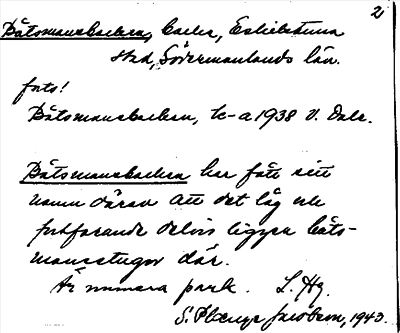 2
Båtsmansbacken, backe, Eskilstuna
stad, Södermanlands län.
forts!
Båtsmansbacken, k-a 1938 V. Dalr.
Båtsmansbacken har fått sitt
namn därav att det låg och
fortfarande delvis ligger båts-
mansstugor där.
Är numera park. I. Hg.
S. Jacobsson, 1943.